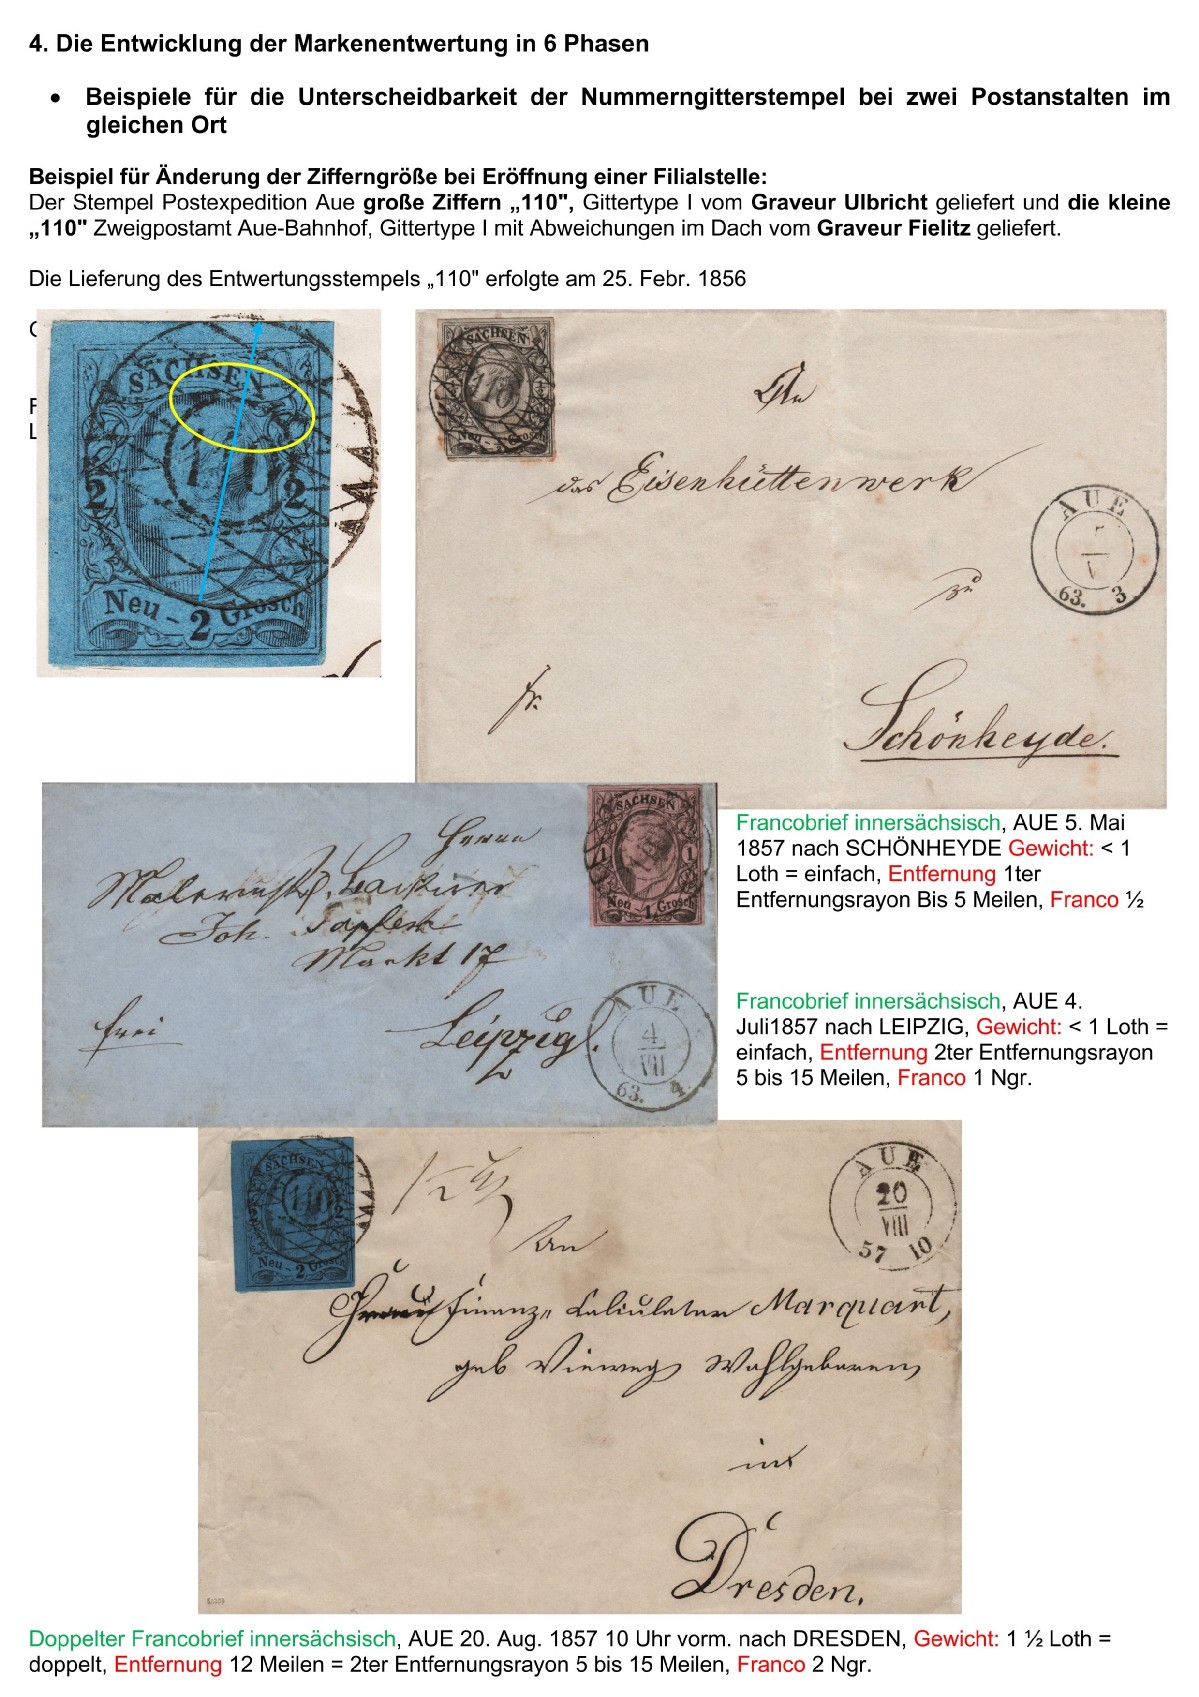 4. Die Entwicklung der Markenentwertung in 6 Phasen
• Beispiele für die Unterscheidbarkeit der Nummerngitterstempel bei zwei Postanstalten im
gleichen Ort
Beispiel für Änderung der Zifferngröße bei Eröffnung einer Filialstelle:
Der Stempel Postexpedition Aue große Ziffern „110", Gittertype I vom Graveur Ulbricht geliefert und die kleine
„110" Zweigpostamt Aue-Bahnhof, Gittertype I mit Abweichungen im Dach vom Graveur Fielitz geliefert.
Die Lieferung des Entwertungsstempels „110" erfolgte am 25. Febr. 1856
SACHSEN
110
2 2
Neu - 2 Grosch
SACHSEN
110
Neu - Grosch
An
das Eisenhüttenwerk
AUE
V
63. 3
zu
fr.
Schönheyde.
SACHSEN
1 1
Neu - 1 Grosch
Herrn
Joh.
Markt 17
frei
Leipzig.
AUE
4
VII
63. 4
Francobrief innersächsisch, AUE 5. Mai
1857 nach SCHÖNHEYDE Gewicht: < 1
Loth = einfach, Entfernung 1ter
Entfernungsrayon Bis 5 Meilen, Franco ½
Francobrief innersächsisch, AUE 4.
Juli1857 nach LEIPZIG, Gewicht: < 1 Loth =
einfach, Entfernung 2ter Entfernungsrayon
5 bis 15 Meilen, Franco 1 Ngr.
SACHSEN
110
Neu - 2 Grosch
AUE
20
VIII
57 10
An
Finanz Calculator Marquart,
geb Vieweg Wohlgeboren
in
Dresden.
Doppelter Francobrief innersächsisch, AUE 20. Aug. 1857 10 Uhr vorm. nach DRESDEN, Gewicht: 1 ½ Loth =
doppelt, Entfernung 12 Meilen = 2ter Entfernungsrayon 5 bis 15 Meilen, Franco 2 Ngr.